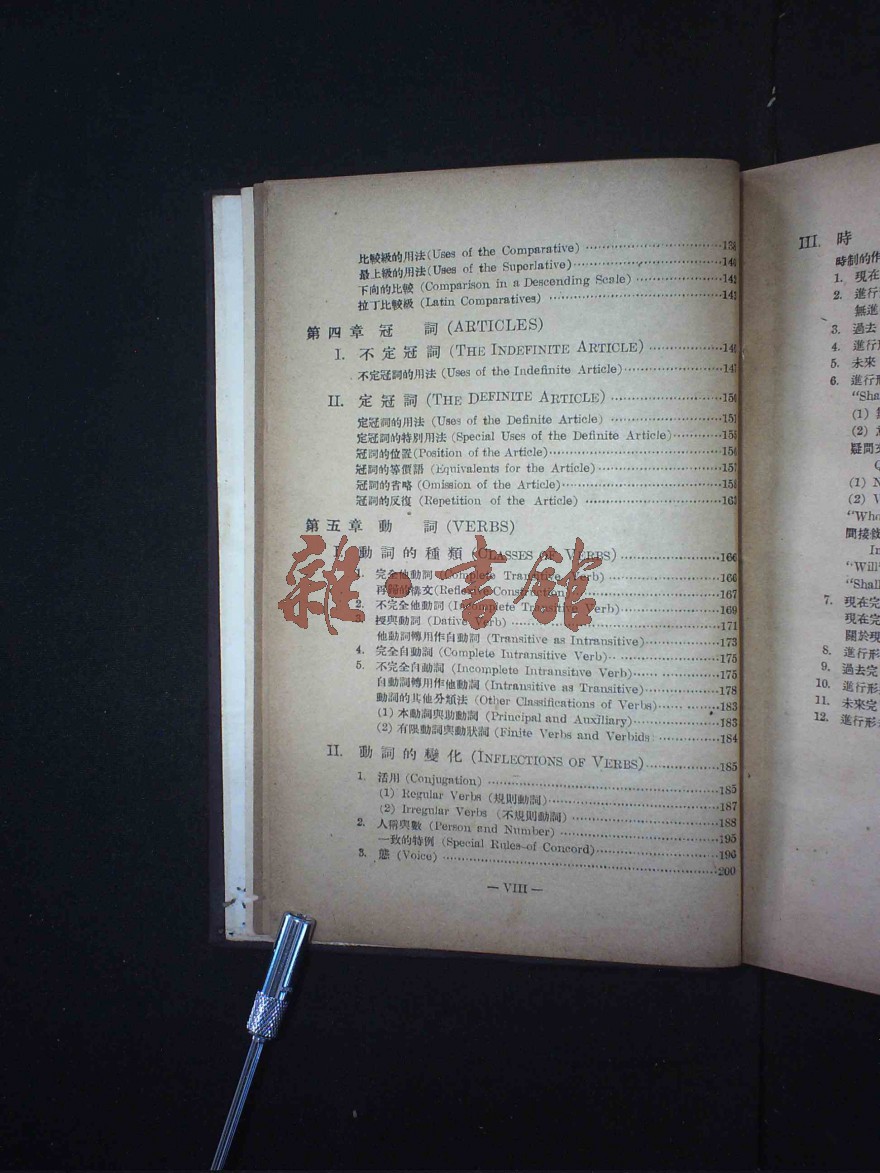 比較級的用法(Uses of the Comparative)
最上級的用法(Uses of the Superlative)
下向的比較 (Comparison in a Descending Scale)
拉丁比較級 (Latin Comparatives)
第四章 冠 詞 (ARTICLES)
I. 不定冠詞 (THE INDEFINITE ARTICLE)
不定冠詞的用法 (Uses of the Indefinite Article)
II. 定冠詞 (THE DEFINITE ARTICLE)
定冠詞的用法 (Uses of the Definite Article)
定冠詞的特別用法 (Special Uses of the Definite Article)
冠詞的位置(Position of the Article)
冠詞的等價語 (Equivalents for the Article)
冠詞的省略 (Omission of the Article)
冠詞的反復 (Repetition of the Article)
第五章 動 詞 (VERBS)
I. 動詞的種類 (CLASSES OF VERBS) 166
1. 完全他動詞 (Complete Transitive Verb) 166
構文(Reflexive Construction) 167
2. 不完全他動詞 (Incomplete Transitive Verb) 169
3. 授與動詞 (Dative Verb) 171
他動詞轉用作自動詞 (Transitive as Intransitive) 173
4. 完全自動詞 (Complete Intransitive Verb) 175
5. 不完全自動詞 (Incomplete Intransitive Verb) 175
自動詞轉用作他動詞 (Intransitive as Transitive) 178
動詞的其他分類法 (Other Classifications of Verbs) 183
(1) 本動詞與助動詞 (Principal and Auxiliary) 183
(2) 有限動詞與動狀詞 (Finite Verbs and Verbids) 184
II. 動詞的變化 (INFLECTIONS OF VERBS) 185
1. 活用 (Conjugation) 185
(1) Regular Verbs (規則動詞) 187
(2) Irregular Verbs (不規則動詞) 188
2. 人稱與數 (Person and Number) 195
一致的特例 (Special Rules of Concord) 196
3. 態 (Voice) 200
— VIII —
雜·書館
III. 時
時制的作
1. 現在
2. 進行
無進
3. 過去
4. 進行形
5. 未來
6. 進行
"Sha
(1)
(2)
疑問
(1) N
(2) V
"Who
間接敘
In
"Will"
"Shall
7. 現在完
現在完
關於現
8. 進行形
9. 過去完
10. 進行形
11. 未來完
12. 進行形